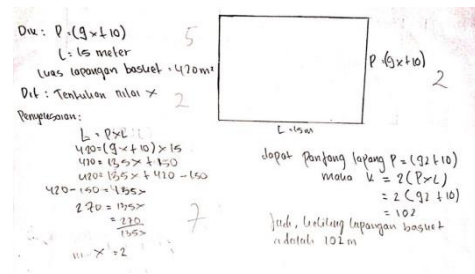 Dik : P = (9x + 10)
L = 15 meter
Luas lapangan basket = 420 m²
Dit : Tentukan nilai x
Penyelesaian :
L = P x L
420 = (9x + 10) x 15
420 = 135x + 150
420 = 135x + 420 - 150
420 - 150 = 135x
270 = 135x
= 270
135x
x = 2
5
2
7
P = (9x+10)
2
L = 15m
dapat panjang lapang P = (92 + 10)
maka k = 2 (P x L)
= 2 (92 + 10)
= 102
Jadi, keliling lapangan basket
adalah 102 m